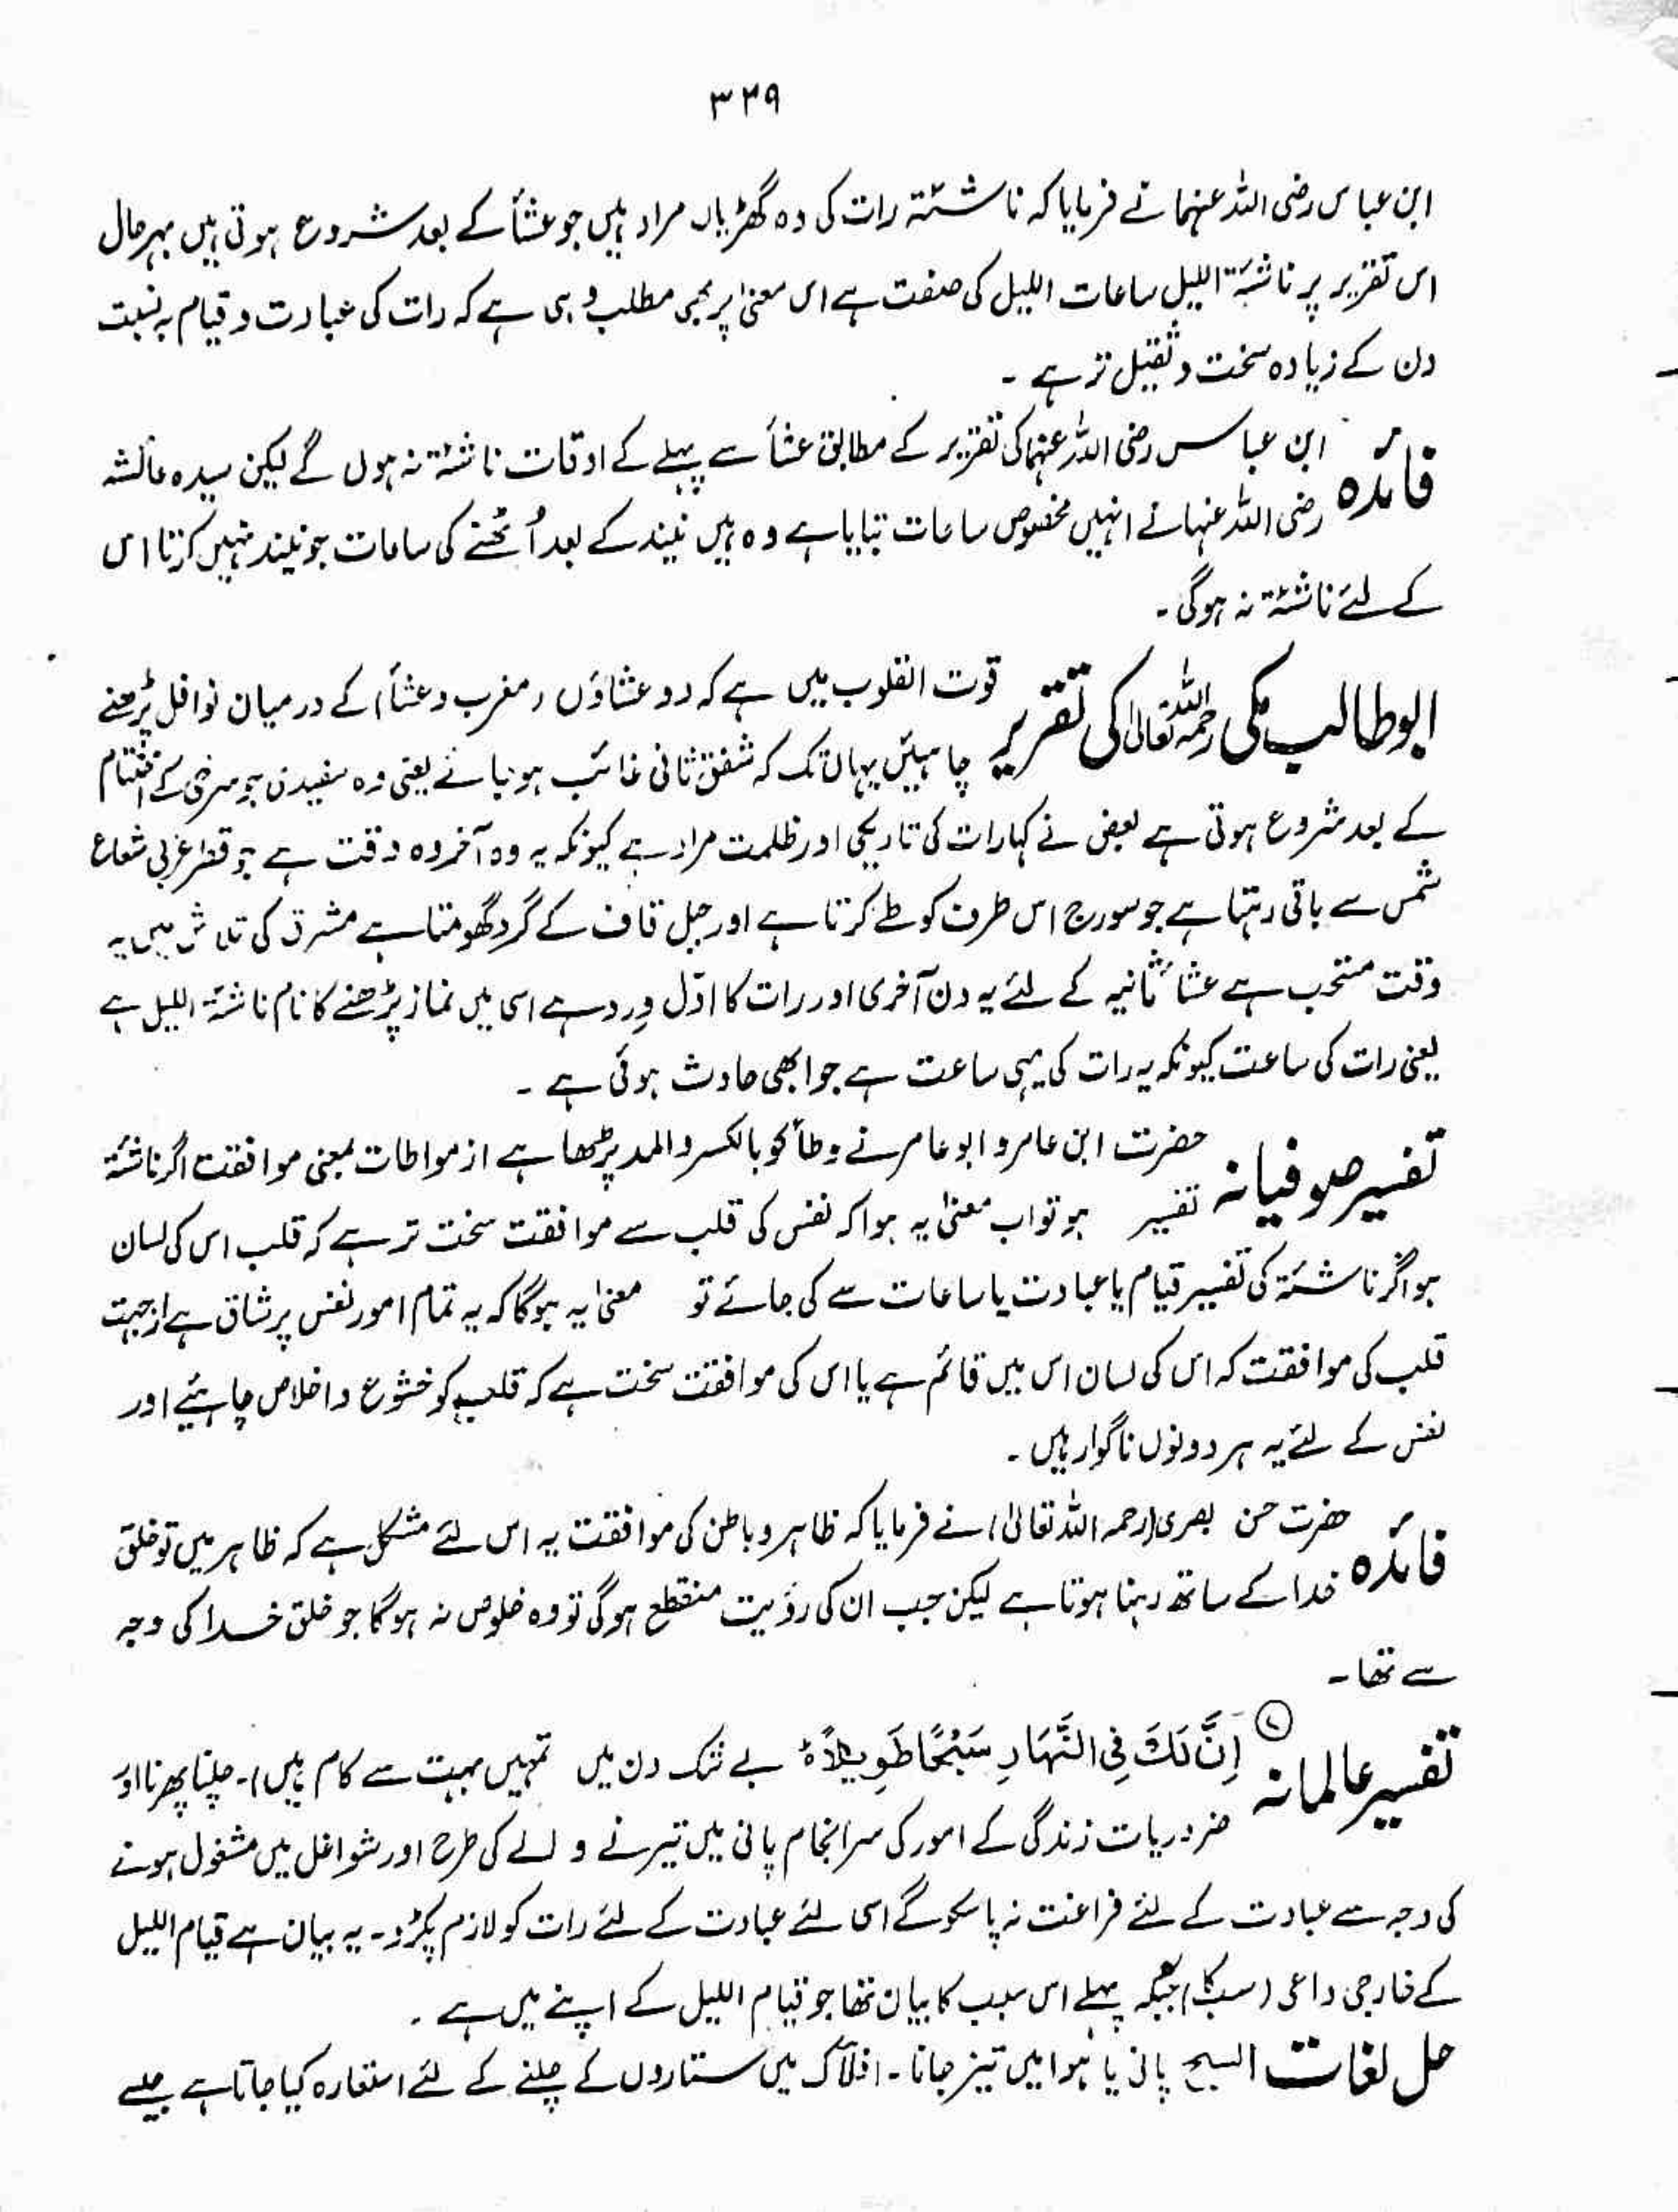 ۳۲۹
ابن عباس رضی اللہ عنہما نے فرمایا کہ ناشئۃ رات کی وہ گھڑیاں مراد ہیں جو عشأ کے بعد شروع ہوتی ہیں بہرحال
اس تقریر پر ناشئۃ اللیل ساعات اللیل کی صفت ہے اس معنیٰ پر بھی مطلب وہی ہے کہ رات کی عبادت و قیام بہ نسبت
دن کے زیادہ سخت و ثقیل تر ہے ۔
فائدہ ابن عباس رضی اللہ عنہما کی تقریر کے مطابق عشأ سے پہلے کے اوقات ناشئۃ نہ ہوں گے لیکن سیدہ عائشہ
رضی اللہ عنہا نے انہیں مخصوص ساعات بتایا ہے وہ ہیں نیند کے بعد اُٹھنے کی ساعات جو نیند نہیں کرتا اس
کے لئے ناشئۃ نہ ہوگی ۔
ابو طالب مکی رحمہ اللہ تعالیٰ کی تقریر قوت القلوب میں ہے کہ دو عشاؤں (مغرب و عشأ) کے درمیان نوافل پڑھنے
چاہئیں یہاں تک کہ شفق ثانی غائب ہو جائے یعنی وہ سفیدی جو سرخی کے اختتام
کے بعد شروع ہوتی ہے بعض نے کہا رات کی تاریکی اور ظلمت مراد ہے کیونکہ یہ وہ آخر وہ وقت ہے جو قطر غربی شعاع
شمس سے باقی رہتا ہے جو سورج اس طرف کو طے کرتا ہے اور جبل قاف کے گرد گھومتا ہے مشرق کی تلاش میں یہ
وقت مستحب ہے عشأ ثانیہ کے لئے یہ دن آخری اور رات کا اوّل وِرد ہے اسی میں نماز پڑھنے کا نام ناشئۃ اللیل ہے
یعنی رات کی ساعت کیونکہ یہ رات کی یہی ساعت ہے جو ابھی حادث ہوئی ہے ۔
تفسیر صوفیانہ حضرت ابن عامر و ابو عامر نے وطأ کو بالکسر والمد پڑھا ہے از مواطات بمعنی موافقت اگر ناشئۃ
تفسیر ہو تو اب معنیٰ یہ ہوا کہ نفس کی قلب سے موافقت سخت تر ہے کہ قلب اس کی لسان
ہو اگر ناشئۃ کی تفسیر قیام یا عبادت یا ساعات سے کی جائے تو معنیٰ یہ ہوگا کہ یہ تمام امور نفس پر شاق ہے از جہت
قلب کی موافقت کہ اس کی لسان اس میں قائم ہے یا اس کی موافقت سخت ہے کہ قلب کو خشوع و اخلاص چاہئیے اور
نفس کے لئے یہ ہر دونوں ناگوار ہیں ۔
فائدہ حضرت حسن بصری (رحمہ اللہ تعالیٰ) نے فرمایا کہ ظاہر و باطن کی موافقت یہ اس لئے مشکل ہے کہ ظاہر میں تو خلق
خدا کے ساتھ رہنا ہوتا ہے لیکن جب ان کی رؤیت منقطع ہوگی تو وہ خلوص نہ ہوگا جو خلق خدا کی وجہ
سے تھا ۔
تفسیر عالمانہ اِنَّ لَكَ فِی النَّهَارِ سَبْحًا طَوِيلًا بے شک دن میں تمہیں بہت سے کام ہیں) ۔ چلنا پھرنا اور
ضروریات زندگی کے امور کی سرانجام پانی میں تیرنے والے کی طرح اور شواغل میں مشغول ہونے
کی وجہ سے عبادت کے لئے فراغت نہ پا سکو گے اسی لئے عبادت کے لئے رات کو لازم پکڑو ۔ یہ بیان ہے قیام اللیل
کے خارجی داعی (سبب کا) جبکہ پہلے اس سبب کا بیان تھا جو قیام اللیل کے اپنے میں ہے ۔
حل لغات السبح پانی یا ہوا میں تیز جانا ۔ افلاک میں ستاروں کے چلنے کے لئے استعارہ کیا جاتا ہے جیسے